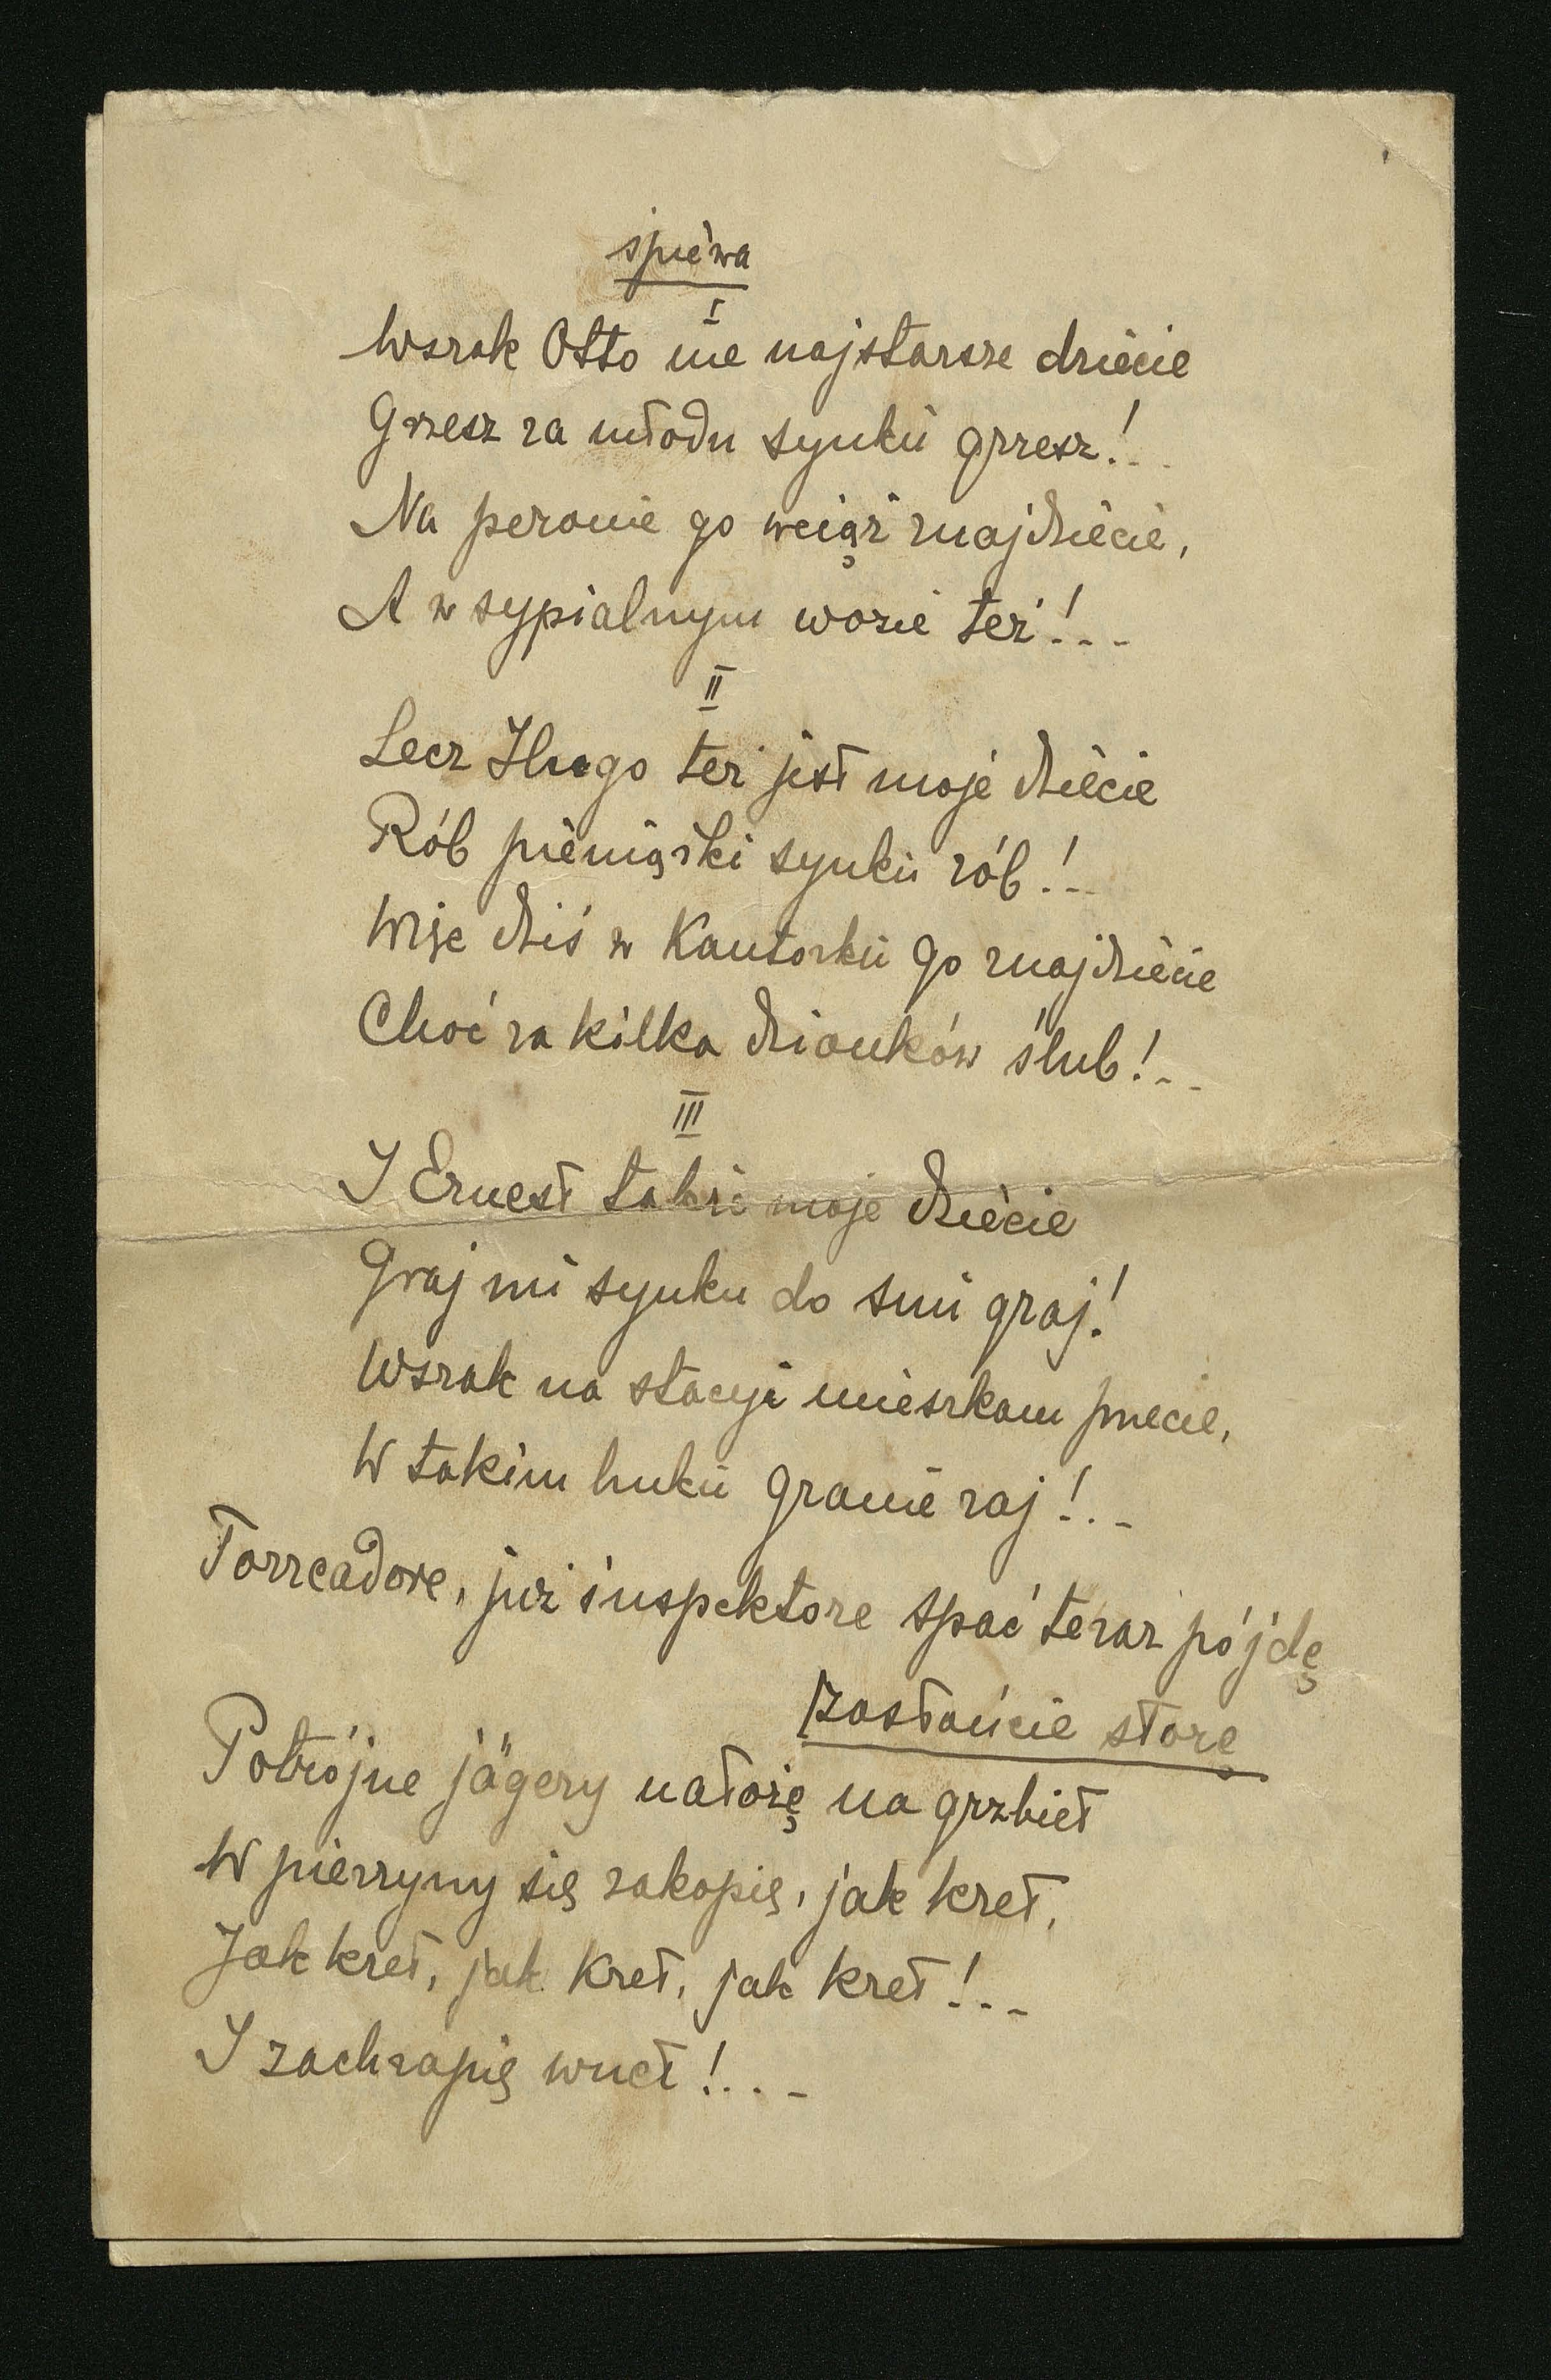 śpiewa
I
Wszak Otto me najstarsze dziecie
Grzesz za młodu synku grzesz!..
Na peronie go wciąż znajdziecie,
A w sypialnym wozie też!...
II
Lecz Hugo też jest moje dziecie
Rób pieniążki synku rób!..
Wszc dziś w Kantorku go znajdziecie
Choć za kilka dzionków ślub!..
III
I Ernest także moje dziecie
Graj mi synku do snu graj!
Wszak na stacyi mieszkam przecie,
W takim huku granie raj!..
Torreadore, już inspektore spać teraz pójdę
zasłońcie storę
Potrójne jägery nałożę na grzbiet
W pierzyny się zakopię, jak kret,
Jak kret, jak kret, jak kret!...
I zachrapię wnet!...